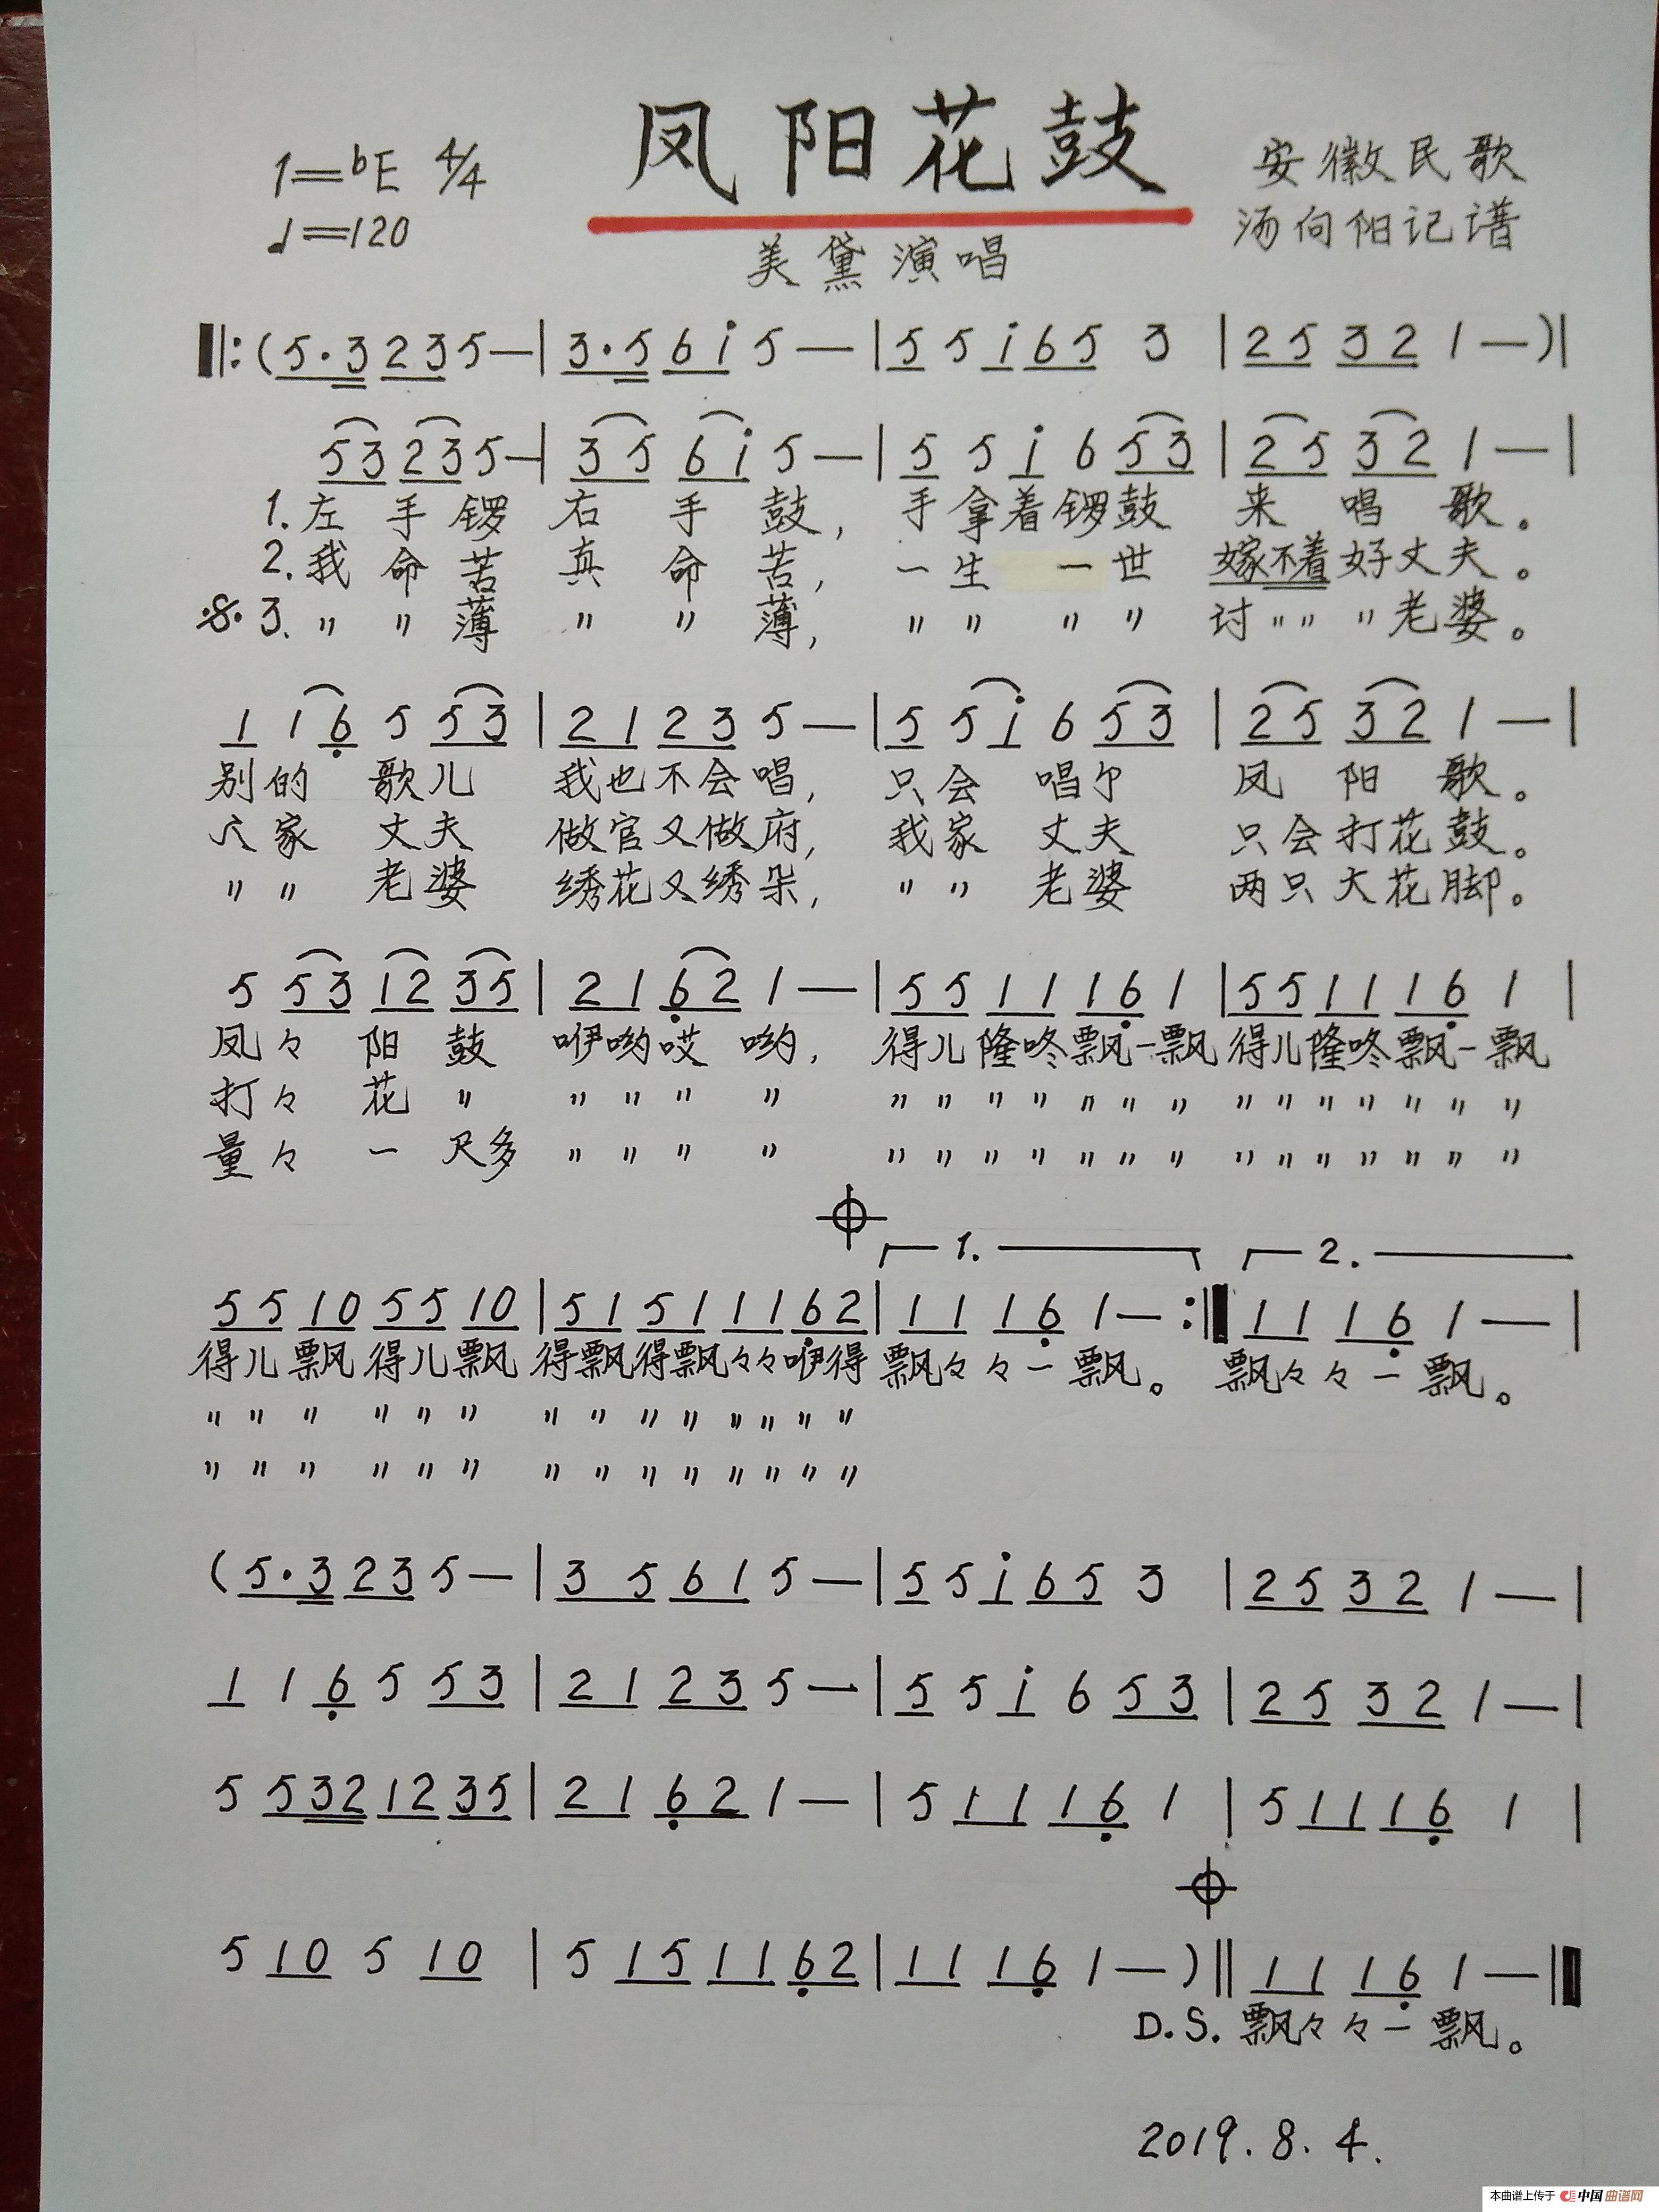 凤阳花鼓
1=bE 4/4
安徽民歌
♩=120
汤向阳记谱
美黛演唱
‖:(5·3 2 3 5—|3·5 6 i 5—|5 5 i 6 5 3|2 5 3 2 1—)|
5 3 2 3 5—|3 5 6 i 5—|5 5 i 6 5 3|2 5 3 2 1—|
1.左手锣 右手鼓,手拿着锣鼓 来唱歌。
2.我命苦 真命苦,一生一世 嫁不着好丈夫。
𝄋 3.〃〃薄 〃〃薄,〃〃〃〃 讨〃〃〃老婆。
1 1 6 5 5 3|2 1 2 3 5—|5 5 i 6 5 3|2 5 3 2 1—|
别的歌儿 我也不会唱,只会唱 凤阳歌。
家丈夫 做官又做府,我家丈夫 只会打花鼓。
〃〃老婆 绣花又绣朵,〃〃老婆 两只大花脚。
5 5 3 1 2 3 5|2 1 6 2 1—|5 5 1 1 1 6 1|5 5 1 1 1 6 1|
凤々阳鼓 咿哟哎哟,得儿隆咚飘一飘 得儿隆咚飘一飘
打々花〃 〃〃〃〃 〃〃〃〃〃〃〃 〃〃〃〃〃〃〃
量々一尺多 〃〃〃〃 〃〃〃〃〃〃〃 〃〃〃〃〃〃〃
1. 2.
5 5 1 0 5 5 1 0|5 1 5 1 1 1 6 2|1 1 1 6 1—:‖1 1 1 6 1—|
得儿飘得儿飘 得飘得飘々々咿得 飘々々一飘。 飘々々一飘。
〃〃〃〃〃〃 〃〃〃〃〃〃〃〃
〃〃〃〃〃〃 〃〃〃〃〃〃〃〃
(5·3 2 3 5—|3 5 6 1 5—|5 5 i 6 5 3|2 5 3 2 1—|
1 1 6 5 5 3|2 1 2 3 5—|5 5 i 6 5 3|2 5 3 2 1—|
5 5 3 2 1 2 3 5|2 1 6 2 1—|5 1 1 1 6 1|5 1 1 1 6 1|
5 1 0 5 1 0|5 1 5 1 1 6 2|1 1 1 6 1—)‖1 1 1 6 1—‖
D.S. 飘々々一飘。
2019.8.4.
本曲谱上传于 中国曲谱网